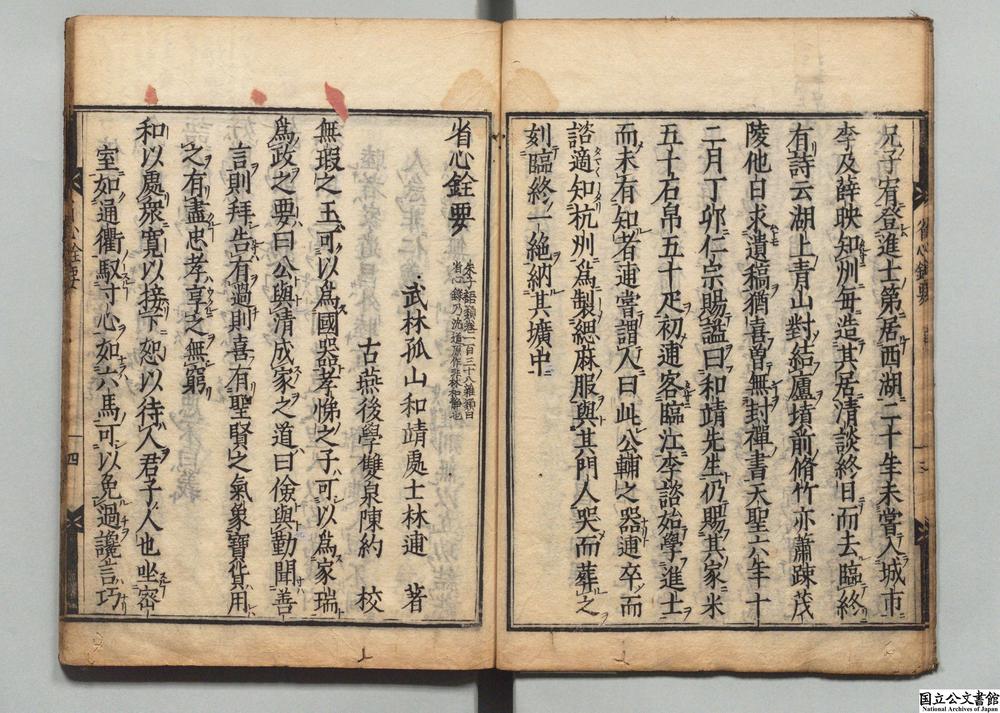 兄子宥登進士第居西湖二十年未嘗入城市
李及薛映知州每造其居清談終日而去臨終
有詩云湖上青山對結廬墳前脩竹亦蕭踈茂
陵他日求遺稿猶喜曾無封禪書天聖六年十
二月丁卯仁宗賜諡曰和靖先生仍賜其家米
五十石帛五十疋初逋客臨江李諮始學進士
而未有知者逋嘗謂人曰此公輔之器逋卒而
諮適知杭州爲製緦麻服與其門人哭而葬之
刻臨終一絶納其壙中
省心銓要
朱子語類卷一百三十八雜類曰
省心錄乃沈道原作非林和靖也
武林孤山和靖處士林逋 著
古燕後學雙泉陳約 校
無瑕之玉可以爲國器孝悌之子可以爲家瑞
爲政之要曰公與清成家之道曰儉與勤聞善
言則拜告有過則喜有聖賢之氣象寶貨用
之有盡忠孝享之無窮
和以處衆寬以接下恕以待人君子人也坐密
室如通衢馭寸心如六馬可以免過讒言巧
省心銓要
四
国立公文書館
National Archives of Japan